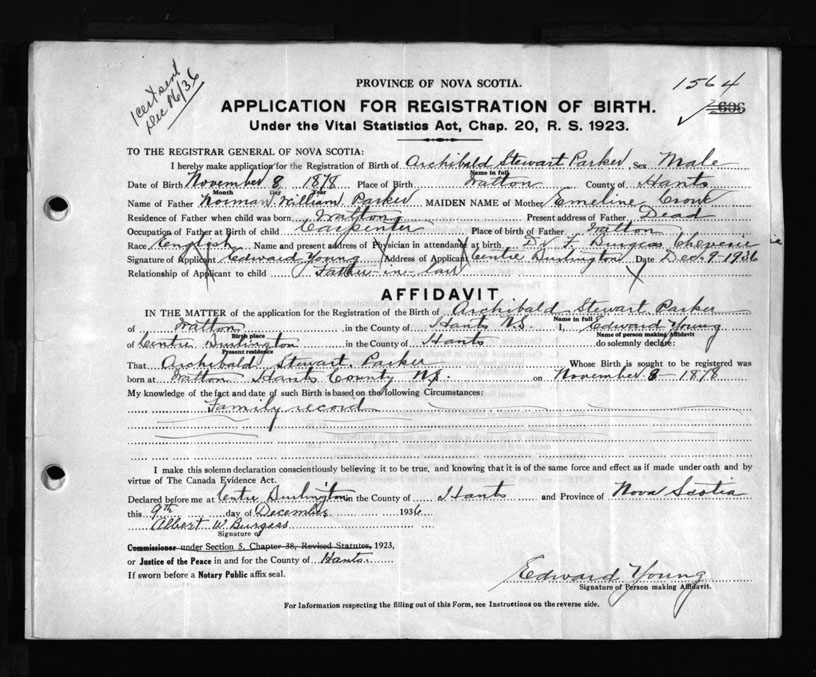 1 cert send
Dec 16/36
PROVINCE OF NOVA SCOTIA.
1564
APPLICATION FOR REGISTRATION OF BIRTH.
✓ 606
Under the Vital Statistics Act, Chap. 20, R. S. 1923.
TO THE REGISTRAR GENERAL OF NOVA SCOTIA:
I hereby make application for the Registration of Birth of Archibald Stewart Parker Sex Male
Name in full
Date of Birth November 8 1878 Place of Birth Walton County of Hants
Month Day Year
Name of Father Norman William Parker MAIDEN NAME of Mother Emeline Crowe
Residence of Father when child was born Walton Present address of Father Dead
Occupation of Father at Birth of child Carpenter Place of birth of Father Walton
Race English Name and present address of Physician in attendance at birth Dr F. Burgess Cheverie
Signature of Applicant Edward Young Address of Applicant Centre Burlington Date Dec. 9-1936
Relationship of Applicant to child Father-in-law
AFFIDAVIT
IN THE MATTER of the application for the Registration of the Birth of Archibald Stewart Parker
Name in full
of Walton in the County of Hants N.S. I, Edward Young
Birth place Name of person making affidavit
of Centre Burlington in the County of Hants do solemnly declare:
Present residence
That Archibald Stewart Parker Whose Birth is sought to be registered was
born at Walton Hants County N.S. on November 8-1878
My knowledge of the fact and date of such Birth is based on the following Circumstances:
Family record
I make this solemn declaration conscientiously believing it to be true, and knowing that it is of the same force and effect as if made under oath and by
virtue of The Canada Evidence Act.
Declared before me at Centre Burlington in the County of Hants and Province of Nova Scotia
this 9th day of December 1936
Albert W. Burgess
Signature of
Commissioner under Section 5, Chapter 38, Revised Statutes, 1923,
or Justice of the Peace in and for the County of Hants.
If sworn before a Notary Public affix seal.
Edward Young
Signature of Person making Affidavit.
For Information respecting the filling out of this Form, see Instructions on the reverse side.